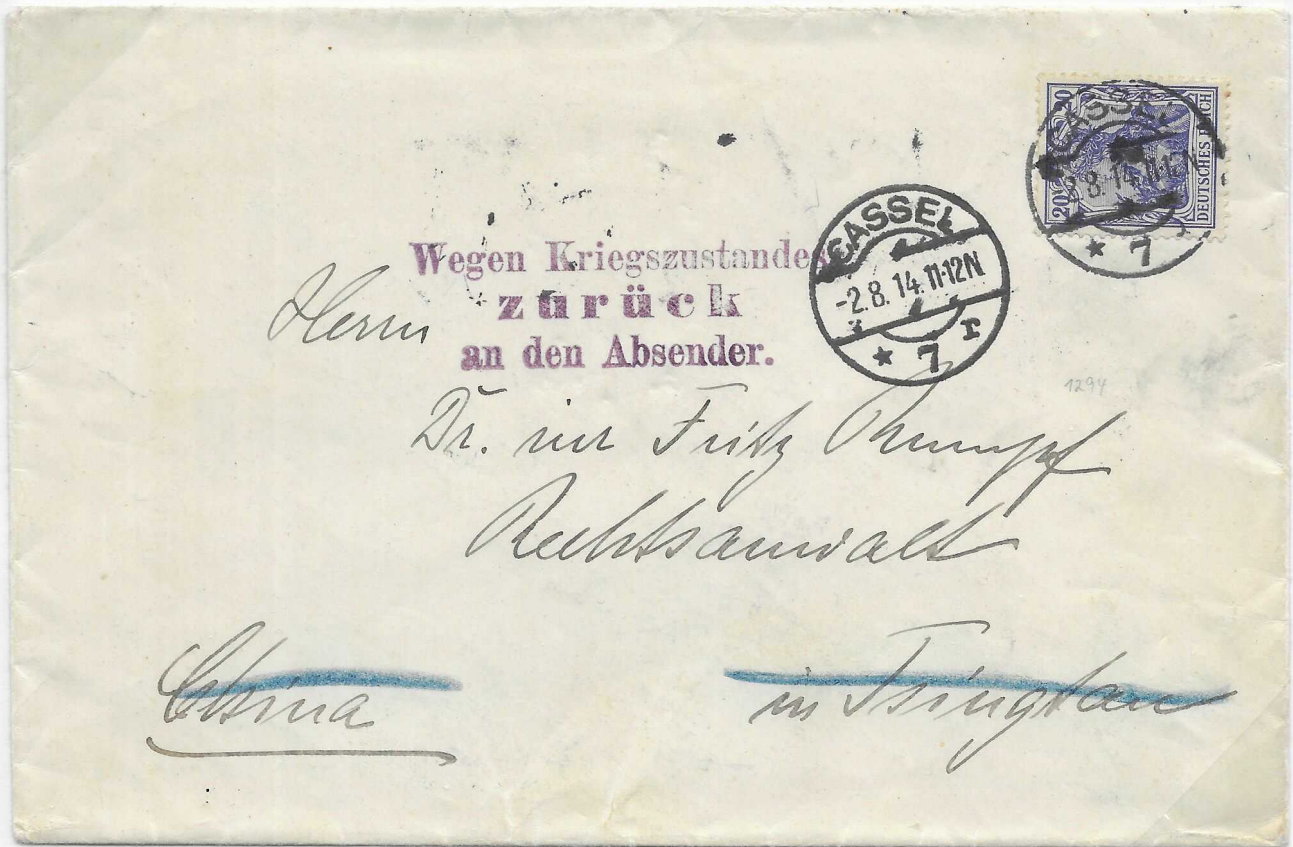 20 20
DEUTSCHES REICH
CASSEL
2.8.14.11-12N
* 7
CASSEL
-2.8.14.11-12N
* 7 r
Wegen Kriegszustandes
zurück
an den Absender.
Herrn
1294
Dr. iur Fritz Rumpf
Rechtsanwalt
in Tsingtau
China